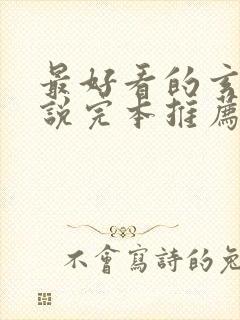 最好看的玄
說完本推薦
不會寫詩的兔